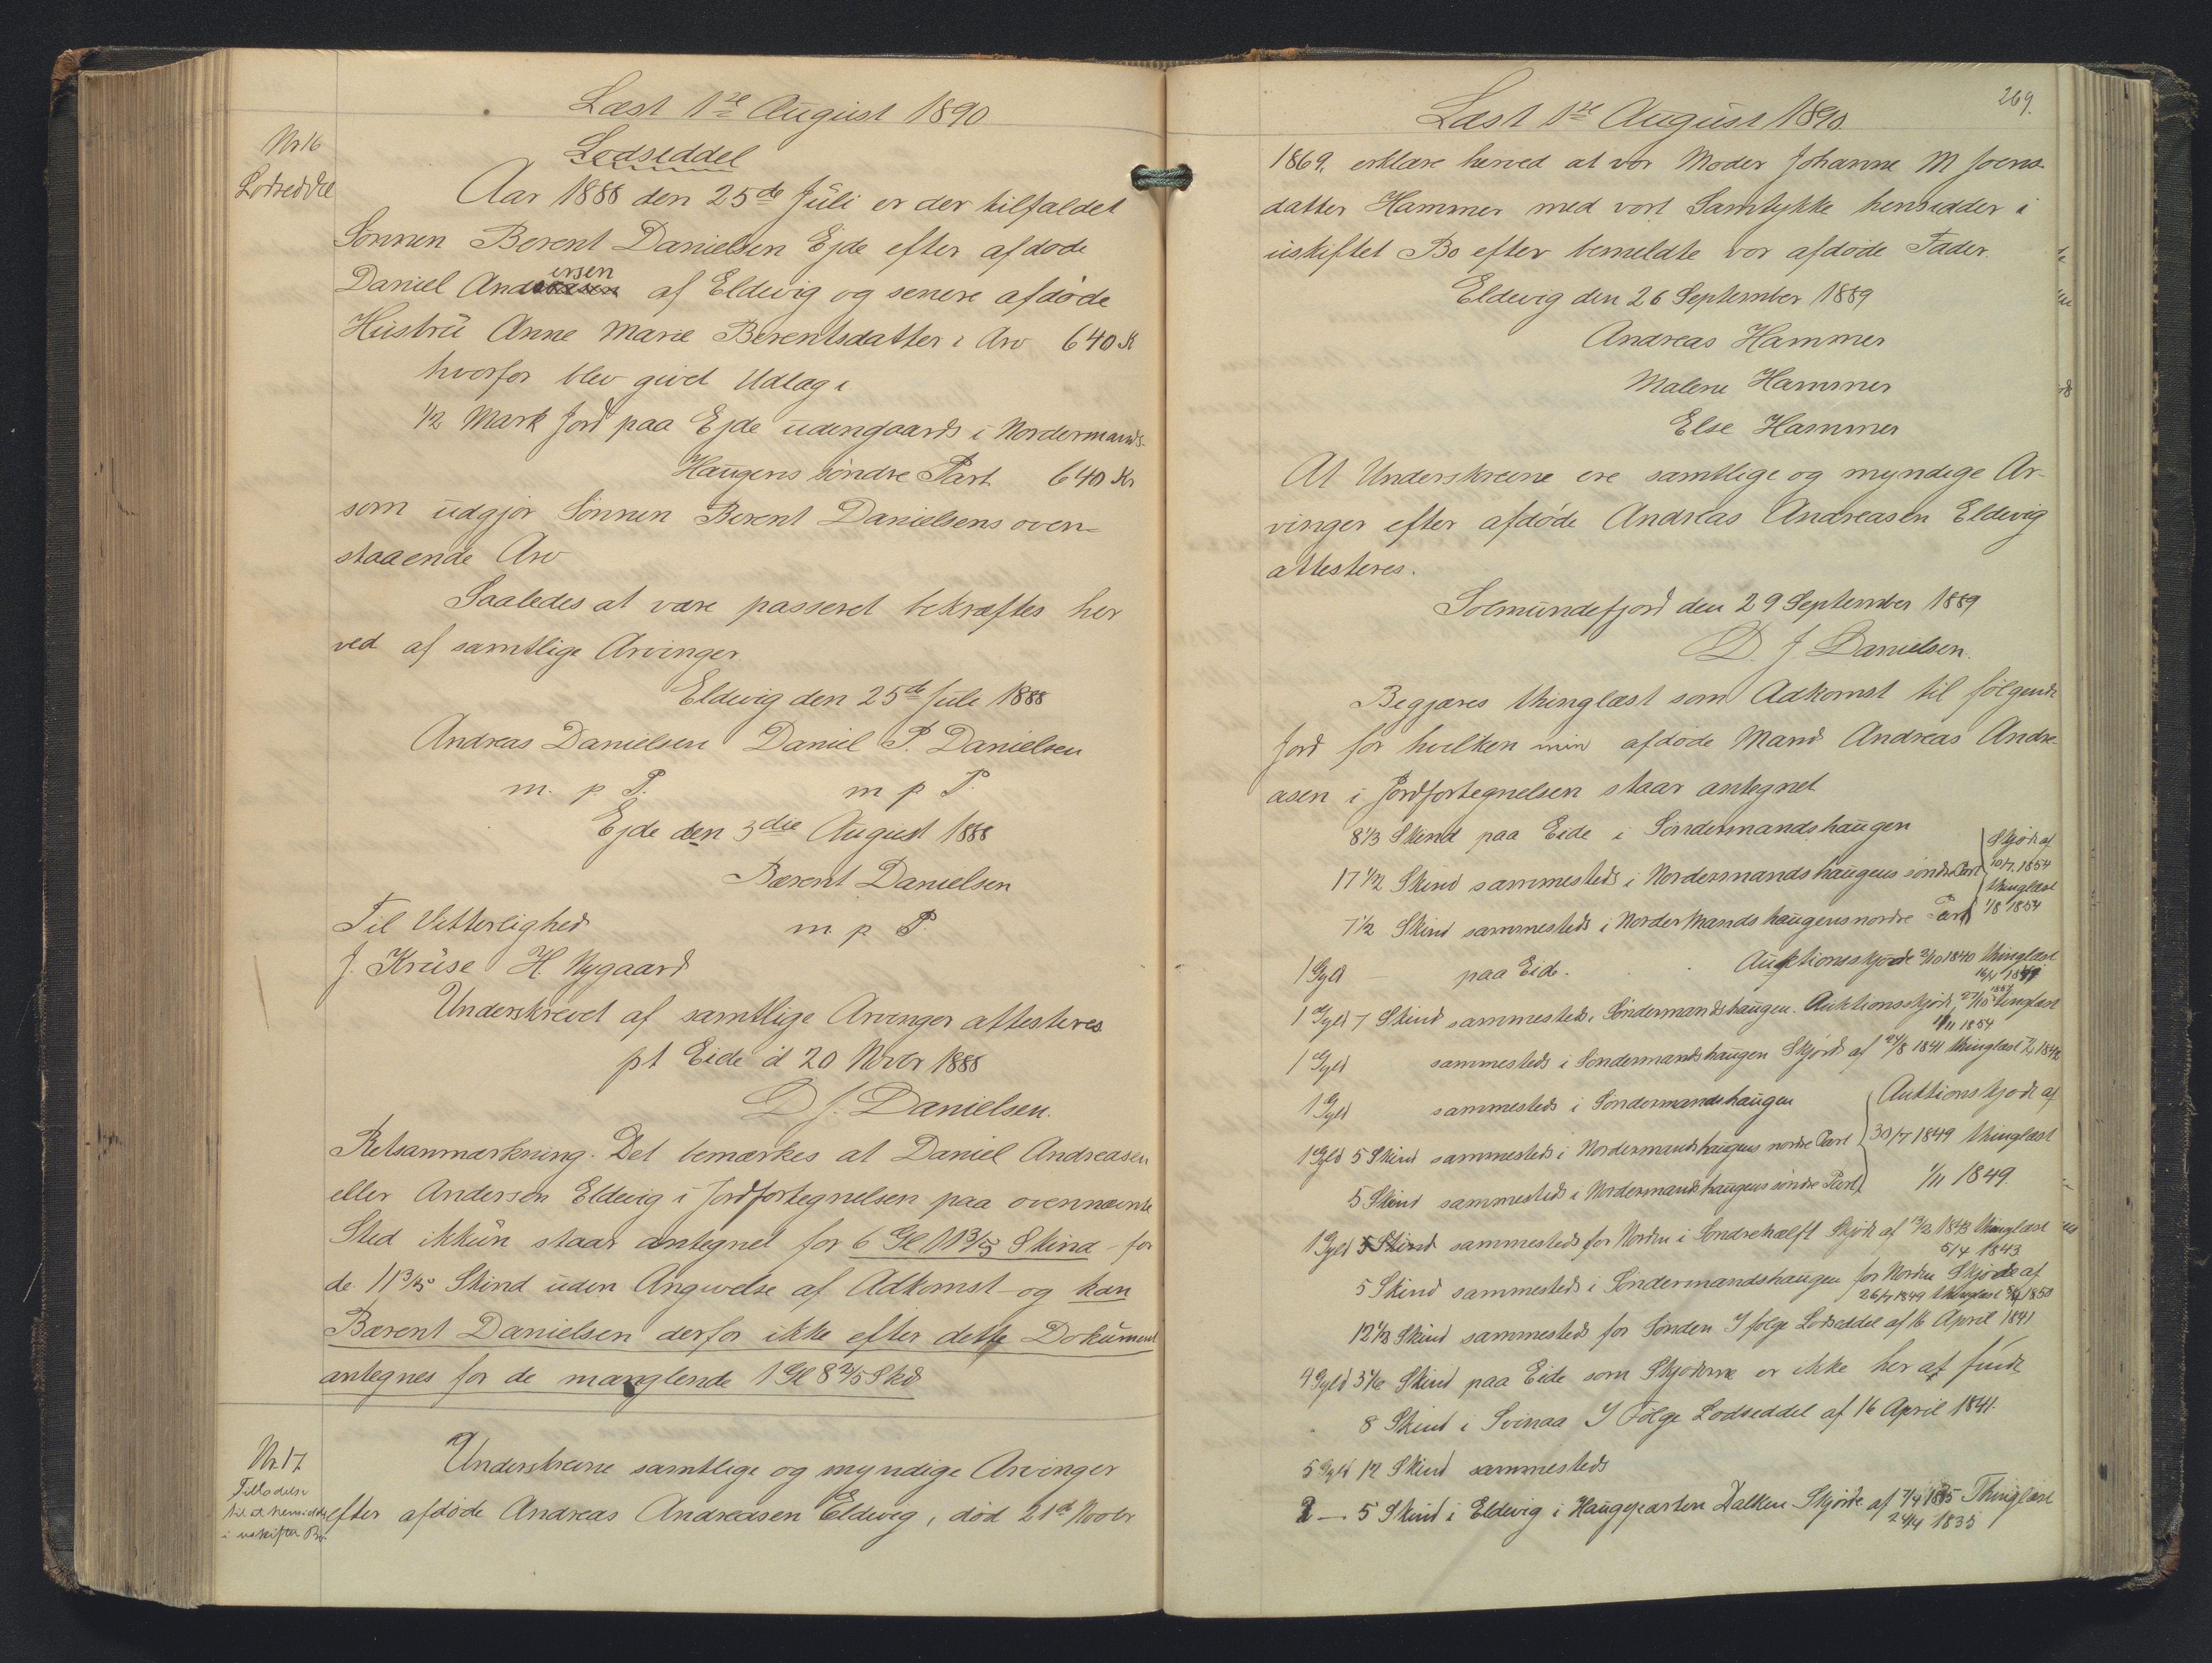 Læst 1ste August 1890
Nr 16
Lodseddel
Lodseddel
Aar 1888 den 25de Juli er der tilfaldet
Sønnen Berent Danielsen Ejde efter afdøde
Daniel Andersen af Eldevig og senere afdøde
Hustru Anne Marie Berentsdatter i Arv 640 K
hvorfor blev givet Udlæg i
1/2 Mark Jord paa Ejde udengaards i Nordermands-
Haugens søndre Part 640 Kr
som udgjør Sønnen Berent Danielsens oven-
staaende Arv
Saaledes at være passeret bekræftes her
ved af samtlige Arvinger
Eldevig den 25de Juli 1888
Andreas Danielsen Daniel P. Danielsen
m. p. P. m p P.
Ejde den 3die August 1888
Bærent Danielsen
Til Vitterlighed m. p. P.
J. Krüse H Nygaard
Underskrevet af samtlige Arvinger attesteres
pt Eide d 20 Novbr 1888
D J. Danielsen.
Retsanmærkning. Det bemærkes at Daniel Andreasen
eller Andersen Eldevig i Jordfortegnelsen paa ovennævnte
Sted ikkun staar antegnet for 6 Gl 11 3/5 Skind - for
de 11 3/5 Skind uden Angivelse af Adkomst - og kan
Bærent Danielsen derfor ikke efter dette Dokument
antegnes for de manglende 1 Gl 8 2/5 Skd
Nr. 17.
Tilladelse
til at hensidde
i uskiftet Bo.
Underskrevne samtlige og myndige Arvinger
efter afdøde Andreas Andreasen Eldevig, død 21de Novbr
269.
Læst 1ste August 1890.
1869, erklære herved at vor Moder Johanne M Joens-
datter Hammer med vort Samtykke hensidder i
uskiftet Bo efter bemeldte vor afdøde Fader.
Eldevig den 26 September 1889
Andreas Hammer
Malene Hammer
Else Hammer
At Underskrevne ere samtlige og myndige Ar-
vinger efter afdøde Andreas Andreasen Eldevig
attesteres.
Solmundefjord den 29 September 1889
D. J. Danielsen.
Begjæres thinglæst som Adkomst til følgende
Jord for hvilken min afdøde Mand Andreas Andre-
asen i Jordfortegnelsen staar antegnet
8 1/3 Skind paa Eide i Søndermandshaugen
17 1/2 Skind sammesteds i Nordermandshaugens søndre Part
7 1/2 Skind sammesteds i Nordermandshaugens nordre Part
Skjøde af
10/7 1854
thinglæst
1/8 1854
1 Gyld — paa Eide. Auktionsskjøde 2/10 1840 thinglæst
16/4 1841
1 Gyld 7 Skind sammesteds i Søndermandshaugen. Auktionsskjøde 27/10 1854 tinglæst
1/11 1854
1 Gyld sammesteds i Søndermandshaugen Skjøde af 24/8 1841 thinglæst 1842
1 Gyld sammesteds i Søndermandshaugen
1 Gyld 5 Skind sammesteds i Nordermandshaugens nordre Part
5 Skind sammesteds i Nordermandshaugens søndre Part
Auktionsskjøde af
30/7 1849 thinglæst
1/11 1849.
1 Gyld 5 Skind sammesteds for Norden i Søndrehælft Skjøde af 1843 thinglæst
5/4 1843
5 Skind sammesteds i Søndermandshaugen for Norden Skjøde af
26/7 1849 thinglæst 1850
12 1/3 Skind sammesteds for Sønden I følge Lodseddel af 16 April 1841
4 Gyld 3 1/6 Skind paa Eide som Skjøderne er ikke her at finde
8 Skind i Svinaa I Følge Lodseddel af 16 April 1841.
5 Gyld 12 Skind sammesteds
2 — 5 Skind i Eldevig i Haugeparten Dalken Skjøde af 7/4 1835 Thinglæst
24/4 1835